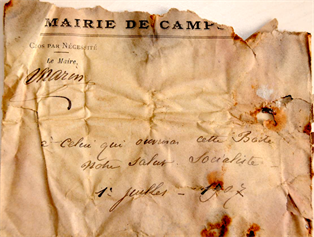 MAIRIE DE CAMPS
CLOS PAR NÉCESSITÉ
Le Maire,
a Celui qui ouvrira cette Boite
Notre Salut Socialiste
1er Juillet - 1907